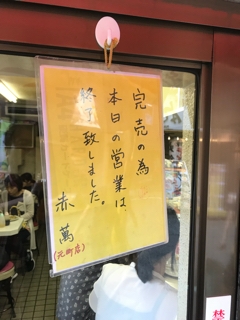 完売の為
本日の営業は
終了致しました。
赤萬
(元町店)
禁